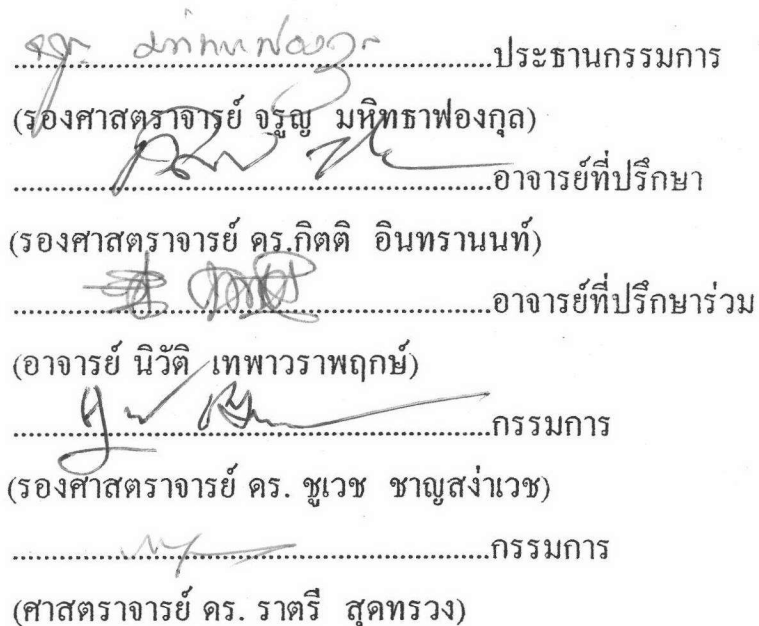 ประธานกรรมการ
(รองศาสตราจารย์ จรูญ มหิทธาฟองกุล)
อาจารย์ที่ปรึกษา
(รองศาสตราจารย์ ดร.กิตติ อินทรานนท์)
อาจารย์ที่ปรึกษาร่วม
(อาจารย์ นิวัติ เทพาวราพฤกษ์)
กรรมการ
(รองศาสตราจารย์ ดร. ชูเวช ชาญสง่าเวช)
กรรมการ
(ศาสตราจารย์ ดร. ราตรี สุดทรวง)